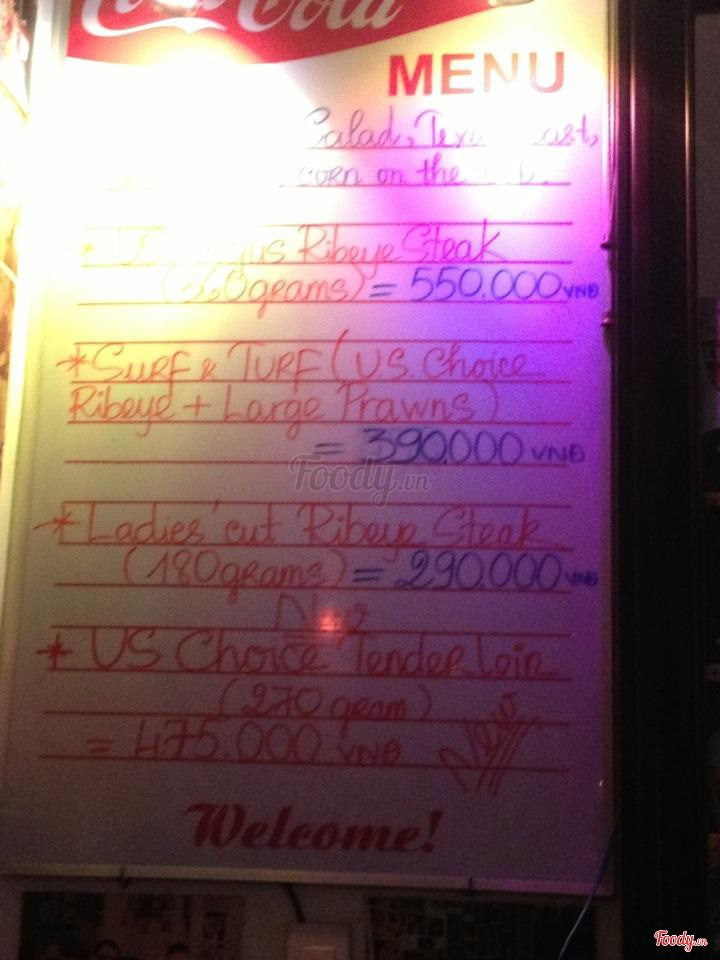 Coca-Cola
MENU
Salad,
corn on the
* Ribeye Steak
(360grams) = 550.000 VNĐ
* SURF & TURF (US. Choice
Ribeye + Large Prawns)
= 390.000 VNĐ
Foody.vn
* Ladies' cut Ribeye Steak
(180grams) = 290.000 VNĐ
* US Choice Tenderloin
(270 gram)
= 475.000 VNĐ
Welcome!
Foody.vn